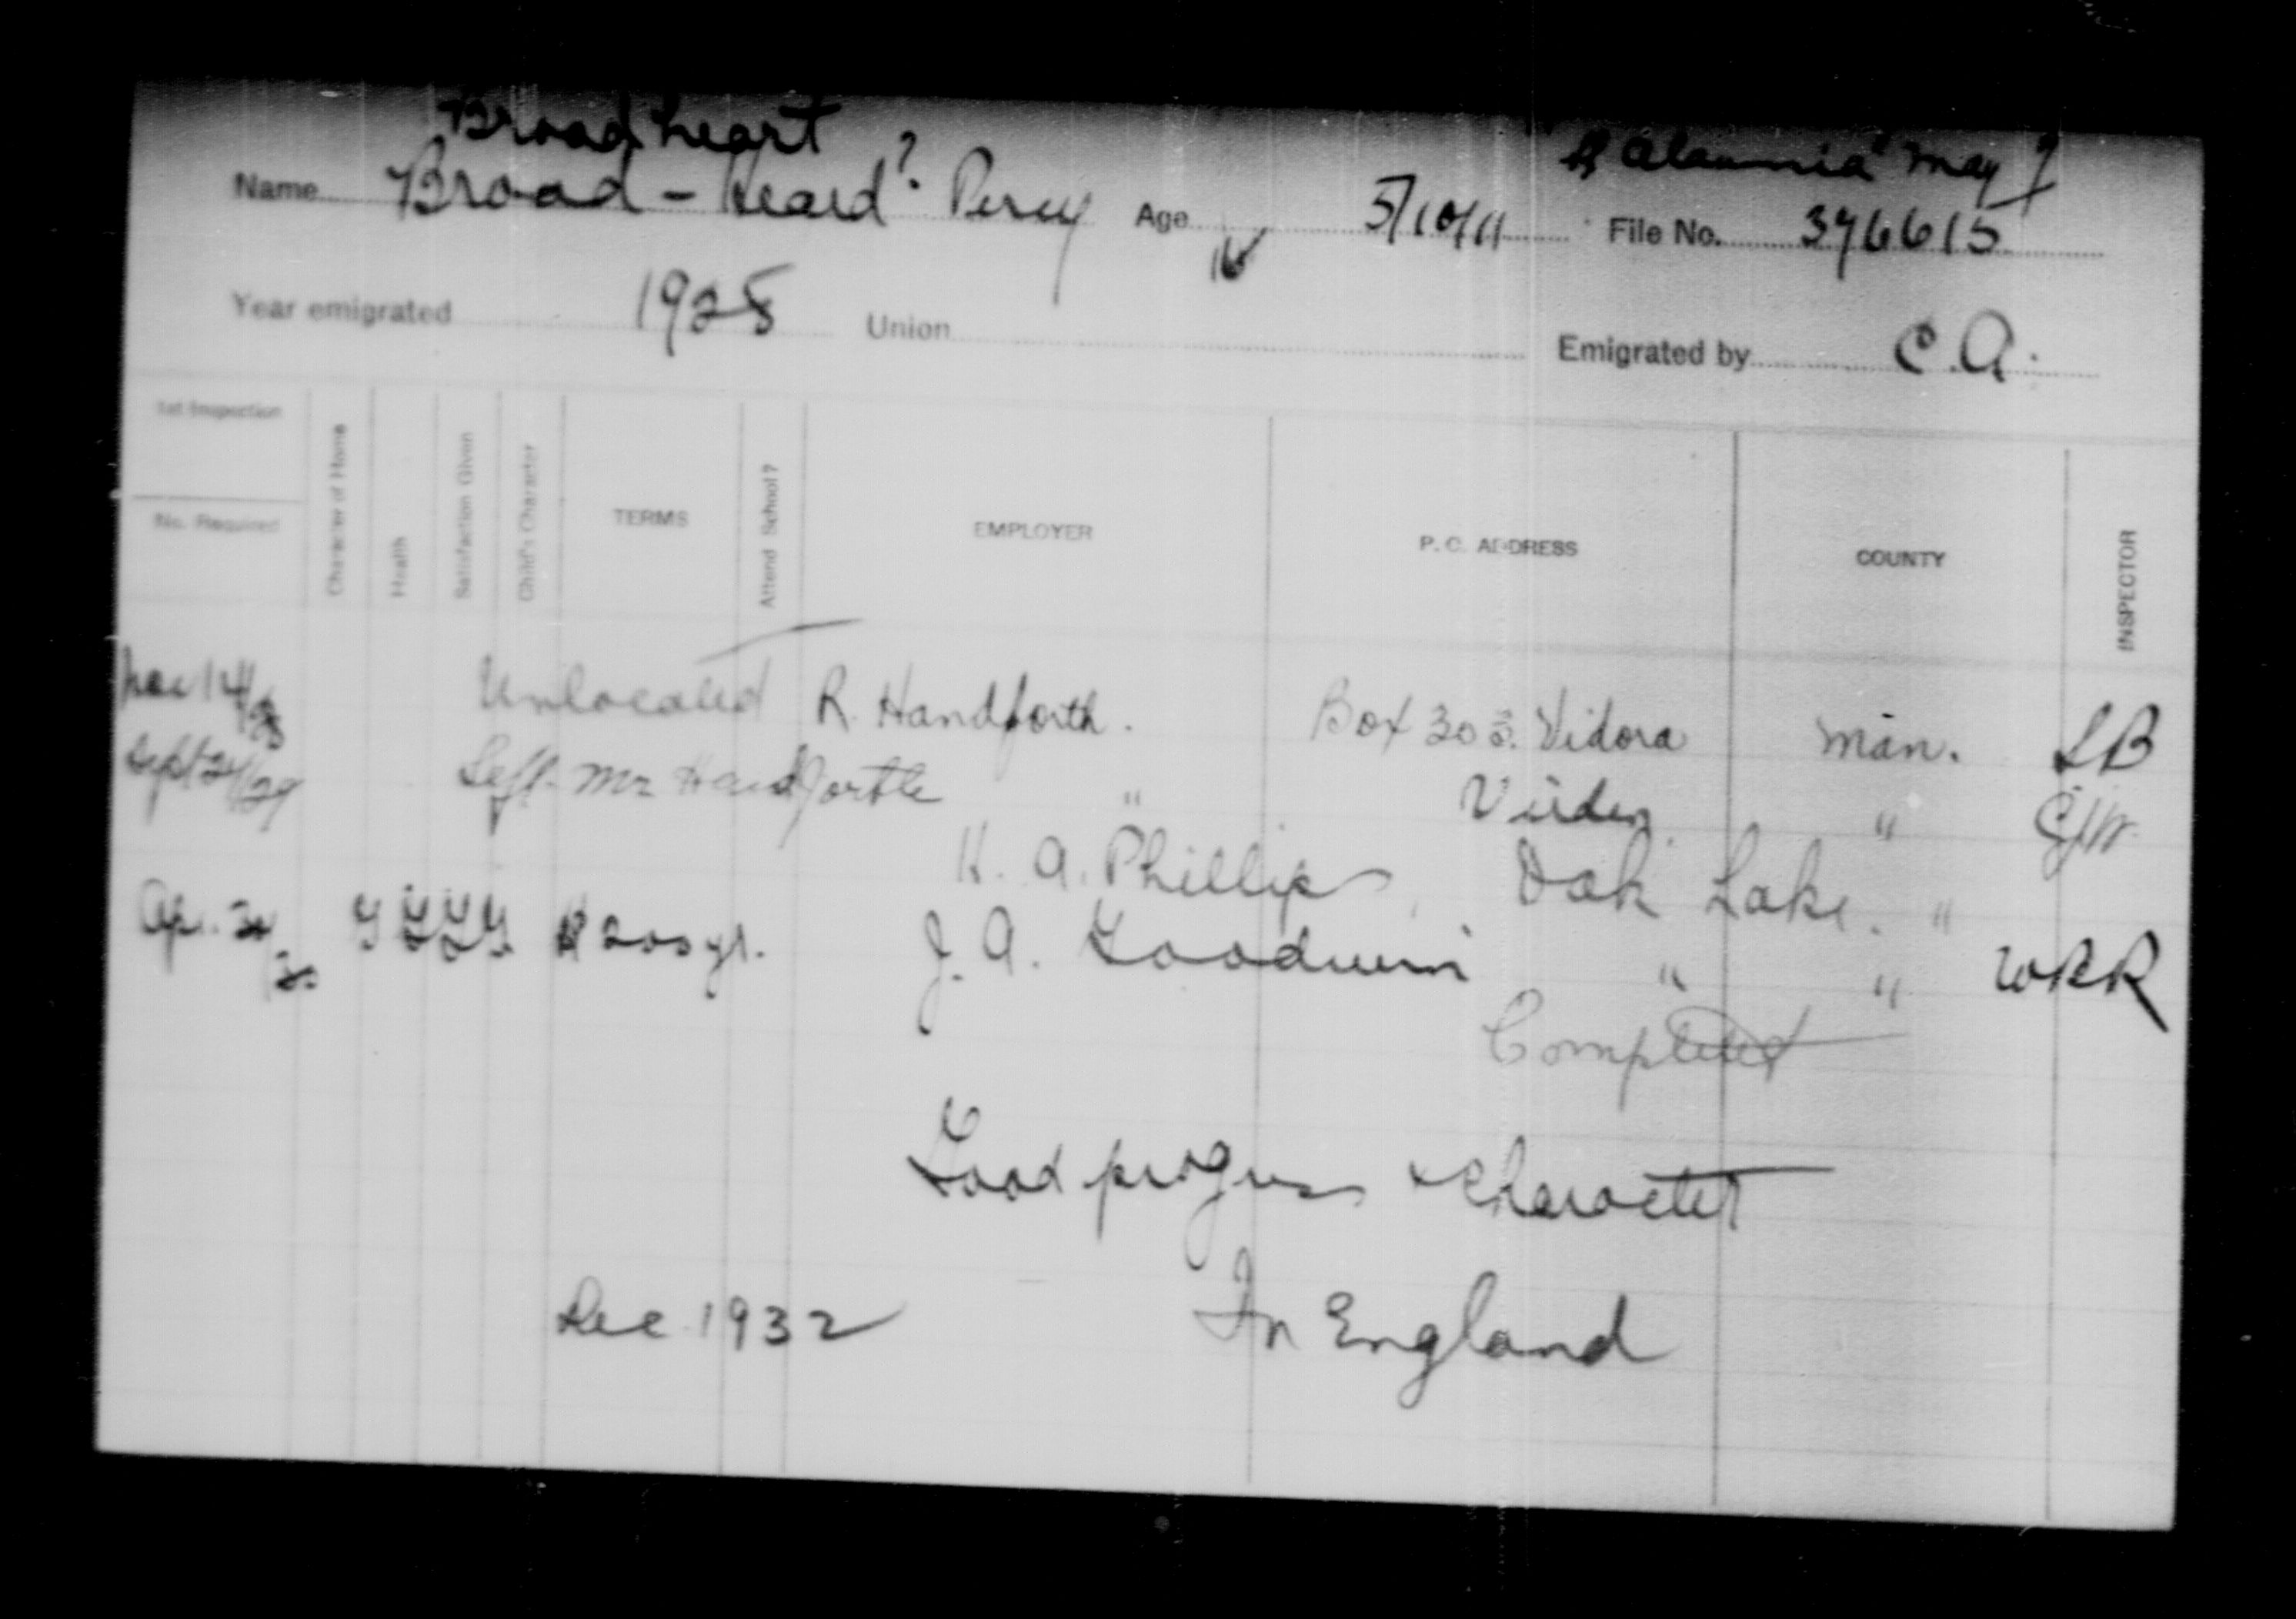 Broadheart
"Alaunia" May 7
Name Broad - Heard? Percy Age 16 5/10/11 File No. 376615
Year emigrated 1928 Union Emigrated by C.A.
1st Inspection
No. Required
Character of Home
Health
Satisfaction Given
Child's Character
TERMS
Attend School?
EMPLOYER
P.O. ADDRESS
COUNTY
INSPECTOR
14/28 Unlocated R. Handforth. Box 305. Vidora Man. LB
Sept 24/29 Left Mr Handforth " Virden "
H. A. Phillips Oak Lake. "
Ap. G G G G $200 yr. J. A. Goodwin " " WRR
Completed
Good progress & character
Dec 1932 In England